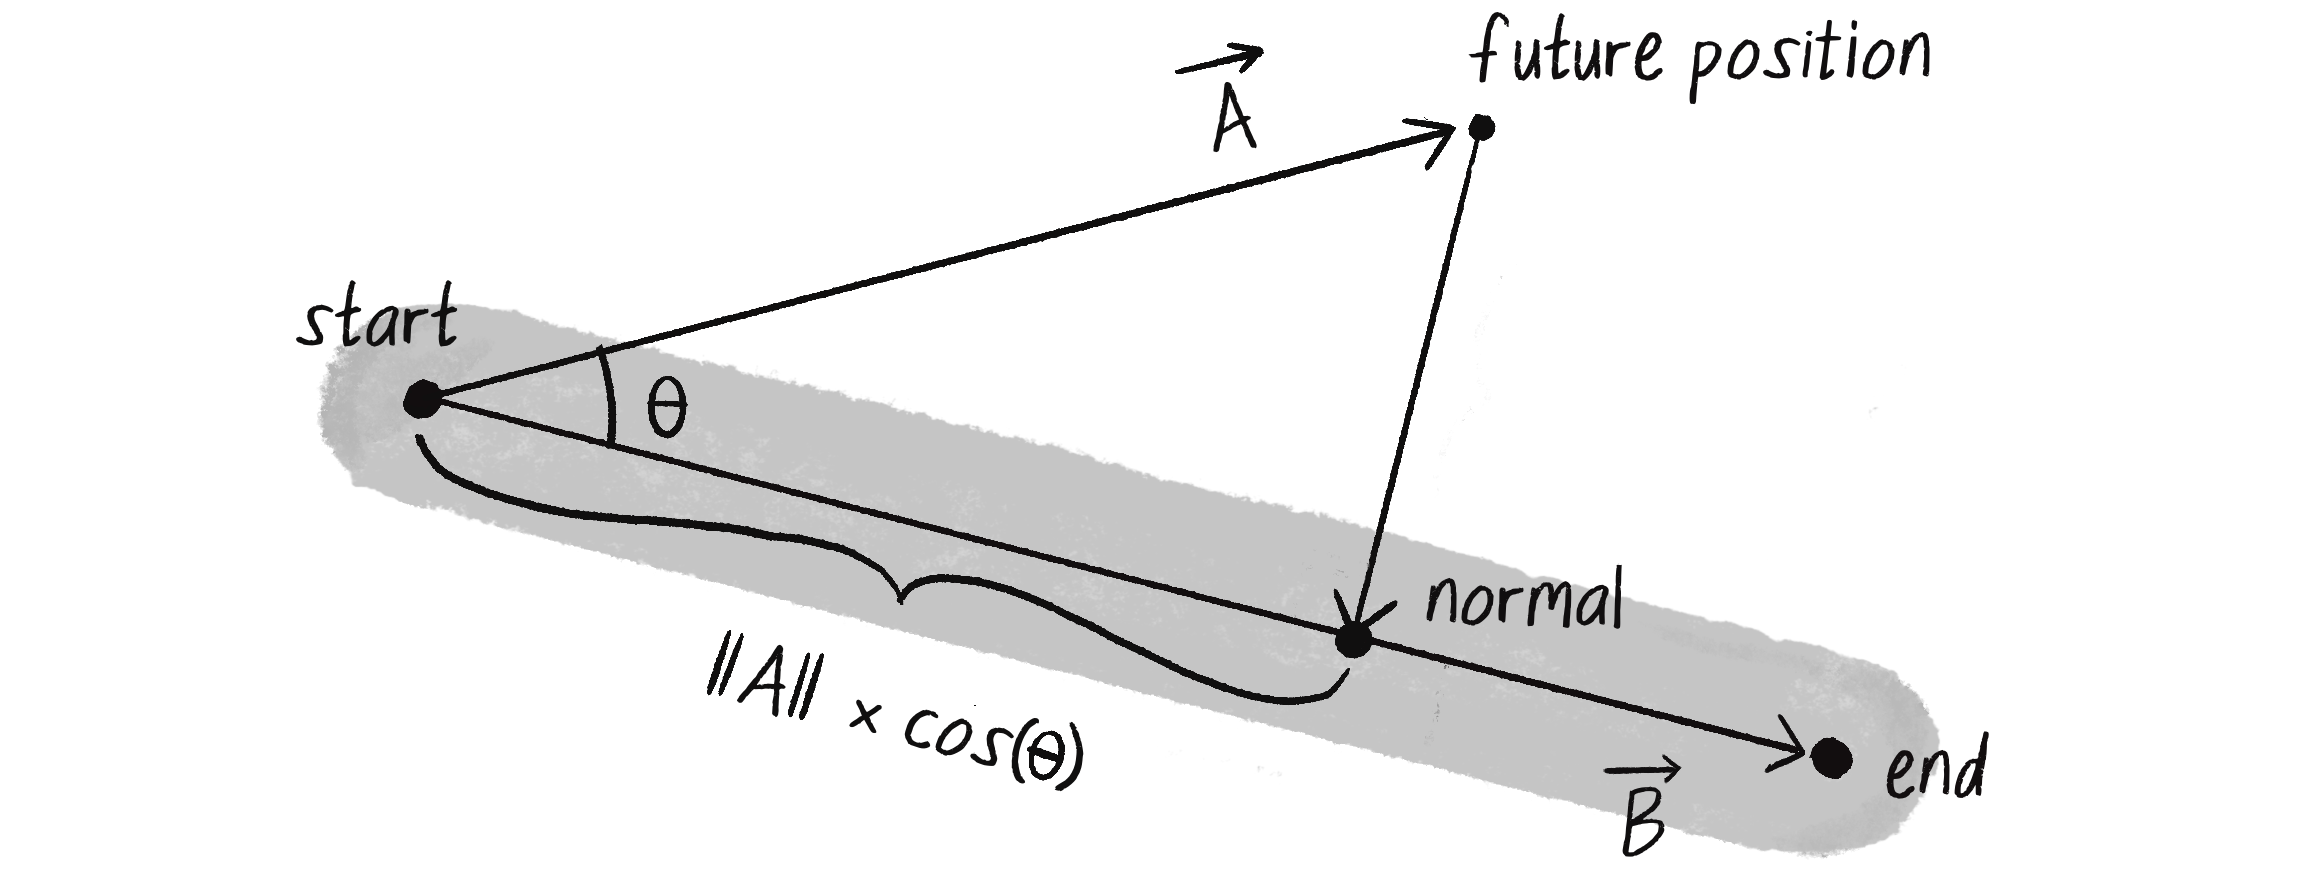 future position
A
start
θ
normal
||A|| × cos(θ)
end
B